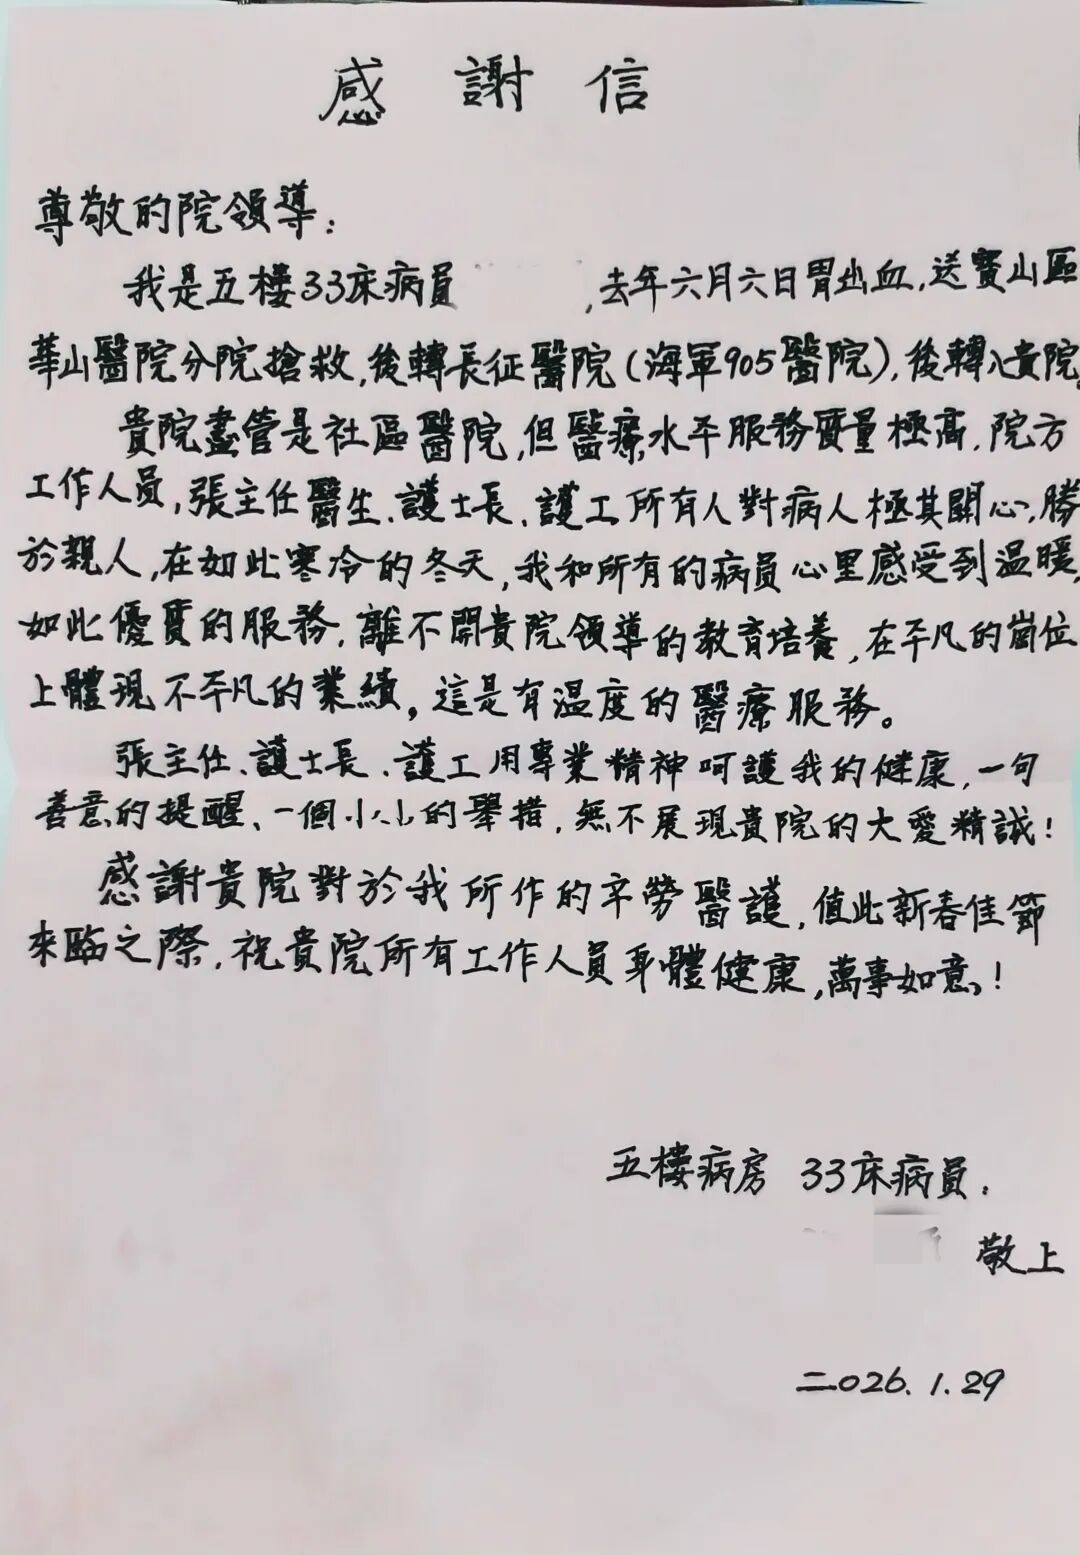 感謝信
尊敬的院領導：
我是五樓33床病員 ,去年六月六日胃出血,送寳山區
華山醫院分院搶救,後轉長征醫院(海軍905醫院),後轉入貴院。
貴院盡管是社區醫院,但醫療水平服務質量極高,院方
工作人員,張主任醫生、護士長、護工所有人對病人極其關心,勝
於親人,在如此寒冷的冬天,我和所有的病員心里感受到温暖,
如此優質的服務,離不開貴院領導的教育培養,在平凡的崗位
上體現不平凡的業績,這是有温度的醫療服務。
張主任、護士長、護工用專業精神呵護我的健康,一句
善意的提醒、一個小小的舉措,無不展現貴院的大愛精誠!
感謝貴院對於我所作的辛勞醫護,值此新春佳節
來臨之際,祝貴院所有工作人員身體健康,萬事如意!
五樓病房 33床病員:
敬上
二026.1.29